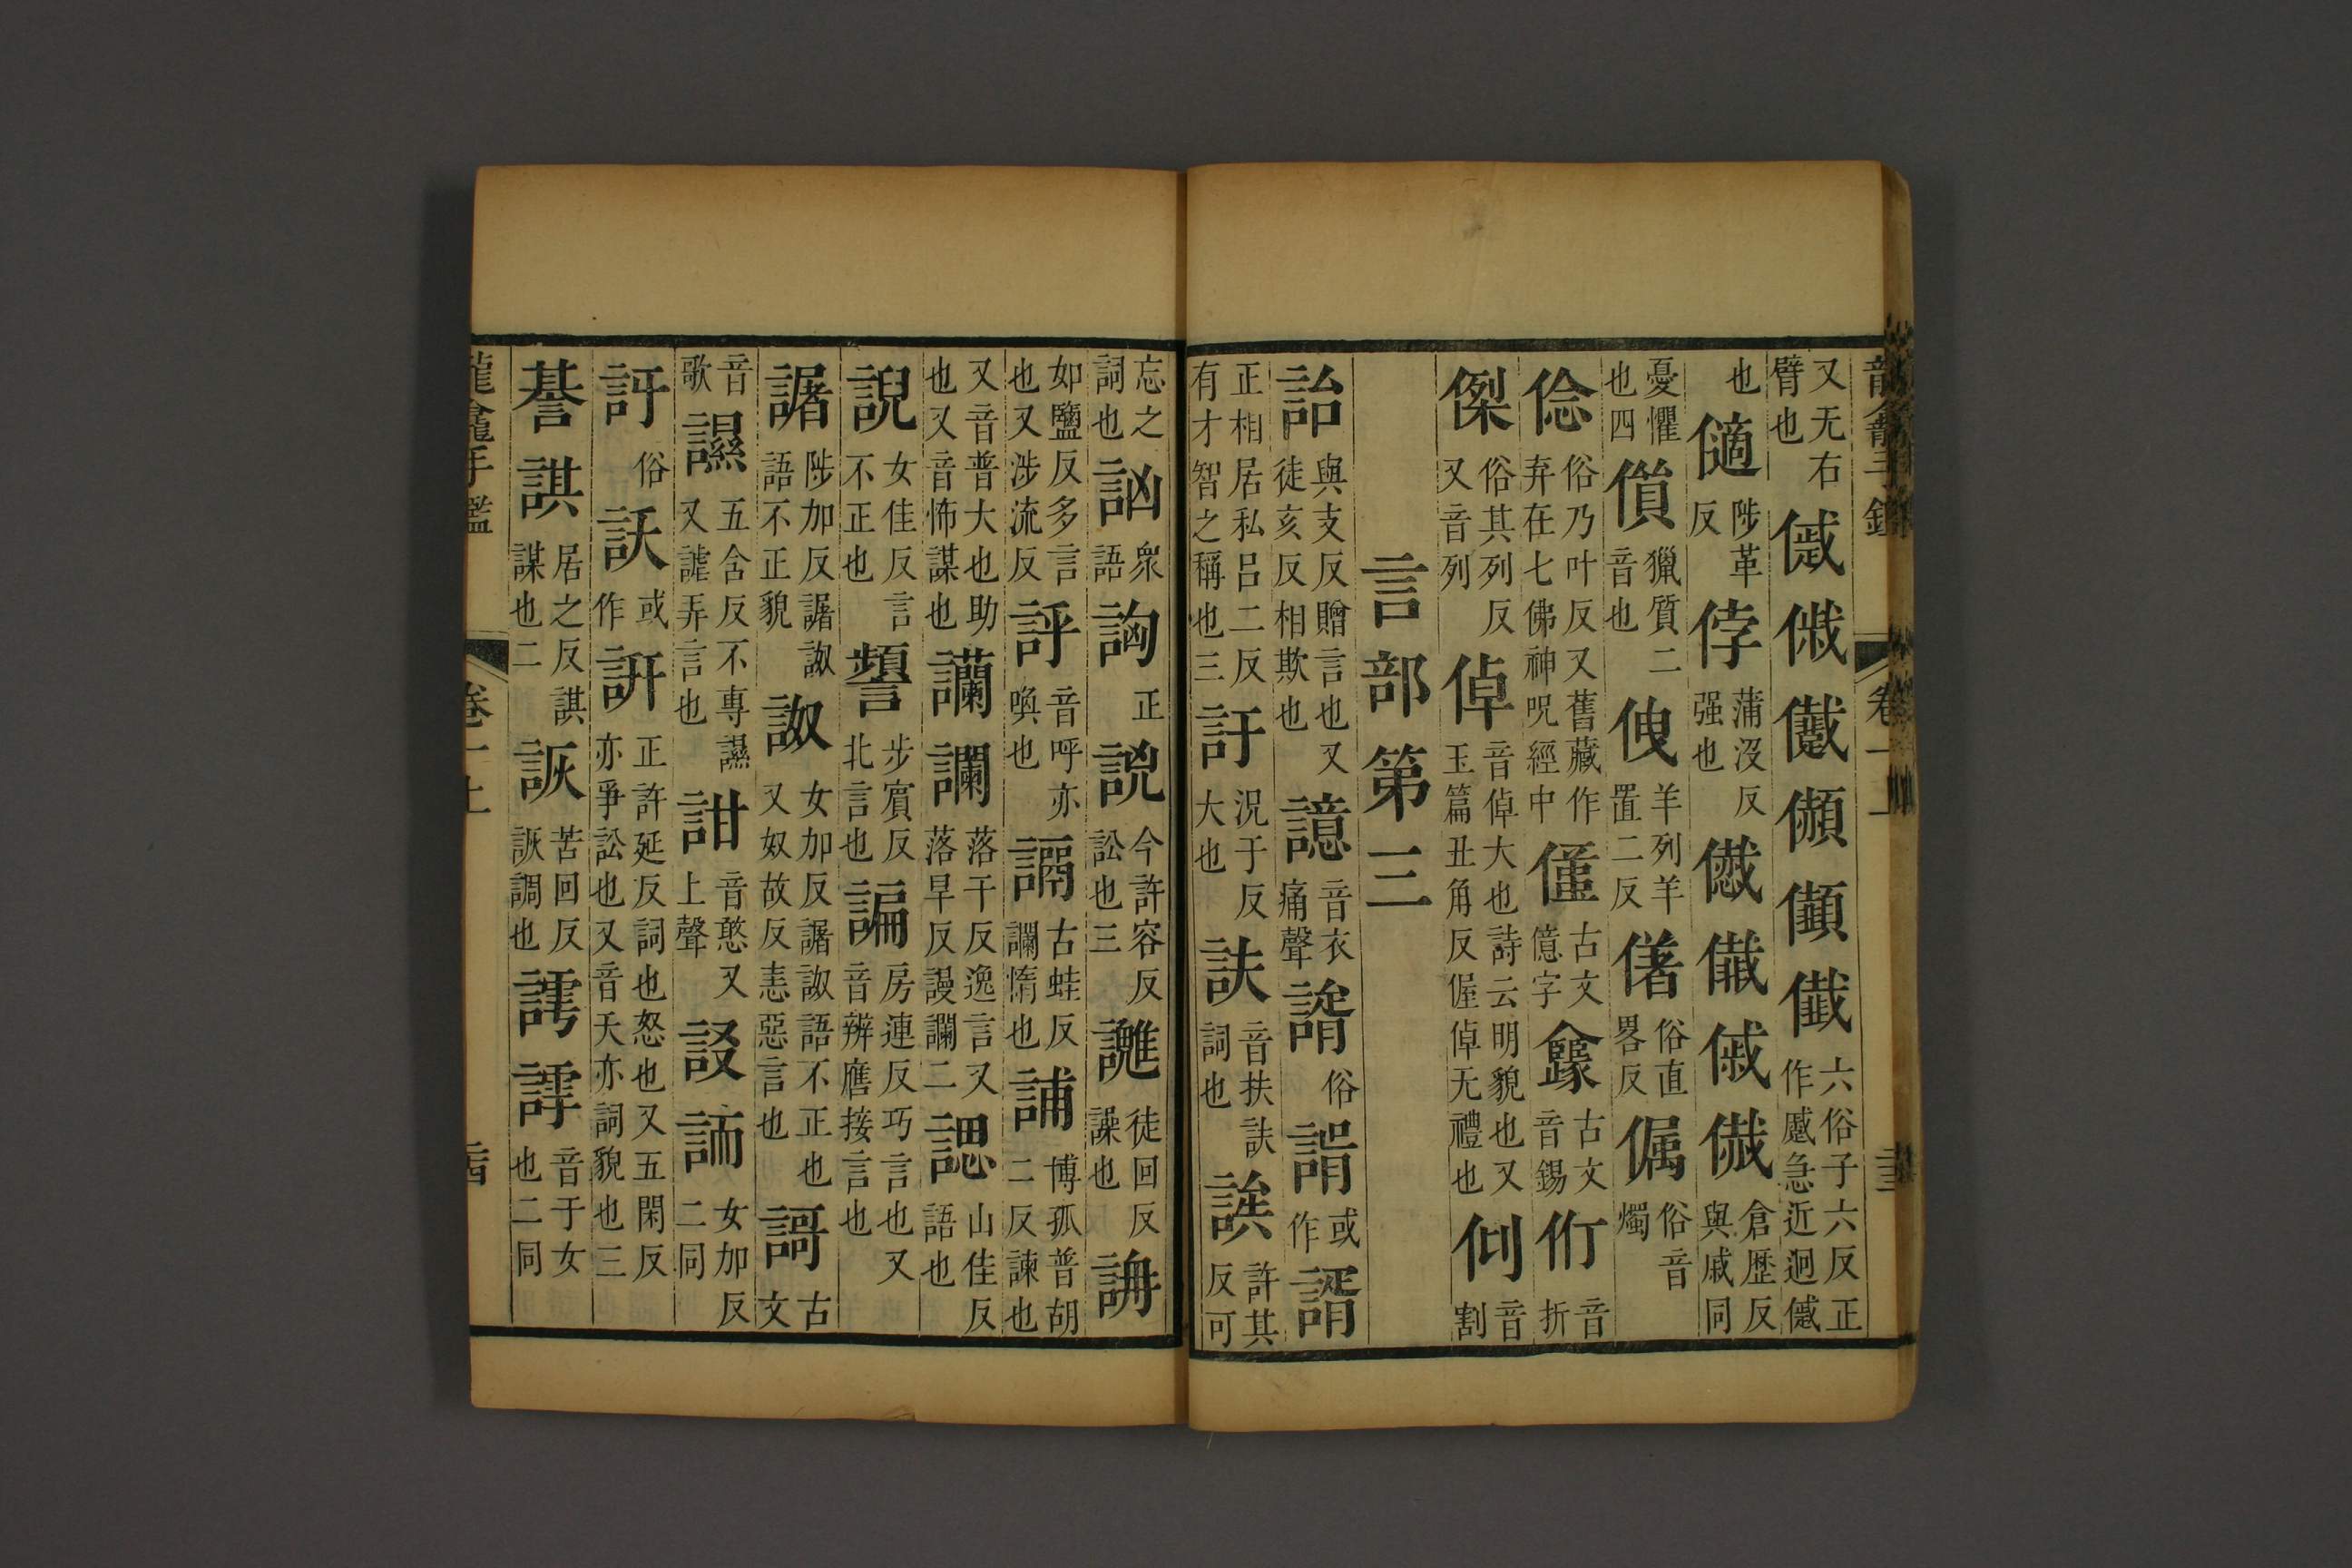 龍龕手鑑 卷一上
又无右臂也 六俗子六反正作慼急近迥慽
也 陟革反 㑣 蒲没反强也 倉歷反與戚同
憂懼也四 儨 獵質二音也 𠈓 羊列羊置二反 俗直畧反 㑉 俗音燭
俗乃叶反又舊藏作弃在七佛神呪經中 古文億字 古文音錫 音折
㑘 俗其列反又音列 倬 音倬大也詩云明貌也又玉篇丑角反偓倬无禮也 音割
言部第三
詒 與支反贈言也又徒亥反相欺也 譩 音衣痛聲 俗 或作 諝
正相居私呂二反有才智之稱也三 訏 況于反大也 䚼 音扶䚼詞也 誒 許其反可
忘之詞也 訩 衆語 詾 正 今許容反訟也三 𧬨 徒回反譟也
如鹽反多言也又涉流反 評 音呼亦喚也 古蛙反讕惰也 誧 博孤普胡二反諫也
又音普大也助也又音怖謀也 讕 落干反逸言又落旱反謾讕二 諰 山佳反語也
䛔 女佳反言不正也 步賓反北言也 諞 房連反巧言也又音辨譍接言也
䜈 陟加反䜈詉語不正貌 詉 女加反䜈詉語不正也又奴故反恚惡言也 謌 古文
音歌 五含反不專又謔弄言也 䛁 音憨又上聲 女加反二同
訝 俗 訞 或作 訮 正許延反詞也怒也又五閑反亦爭訟也又音天亦詞貌也三
諅 諆 居之反諆謀也二 詼 苦回反詼調也 謣 音于女也二同
龍龕手鑑 卷一上